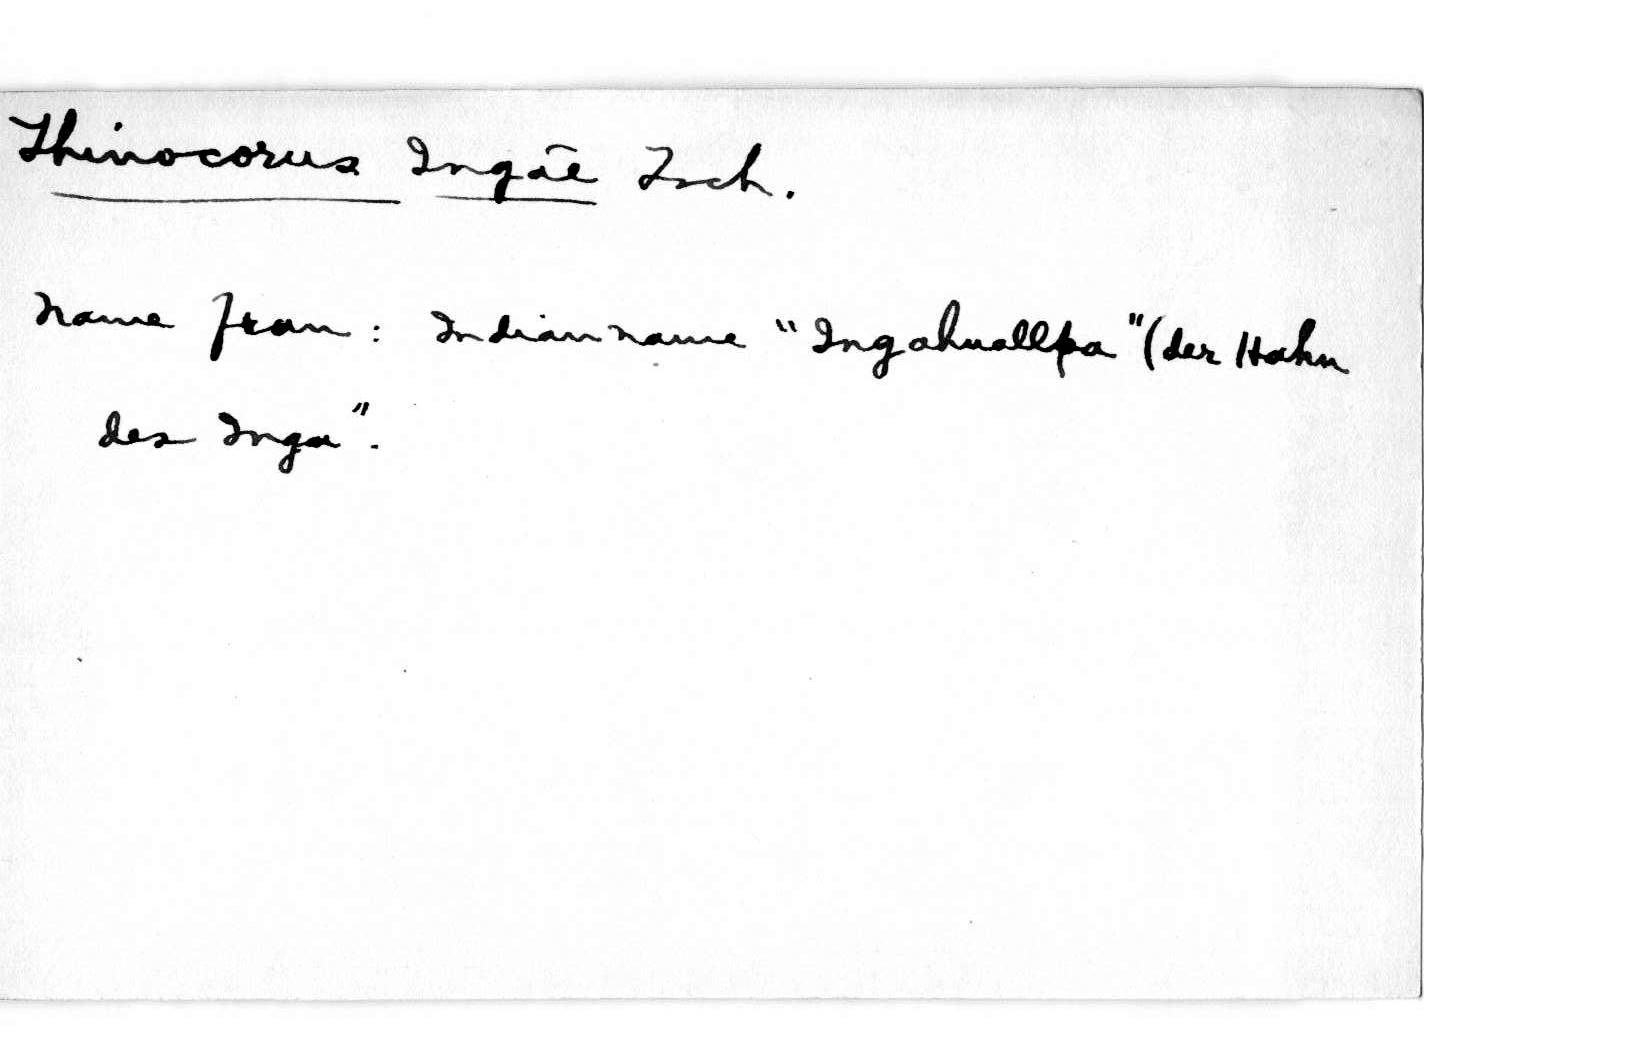 Thinocorus Ingāe Tsch.
Name from: Indian name "Ingahuallpa" (der Hahn
des Inga".